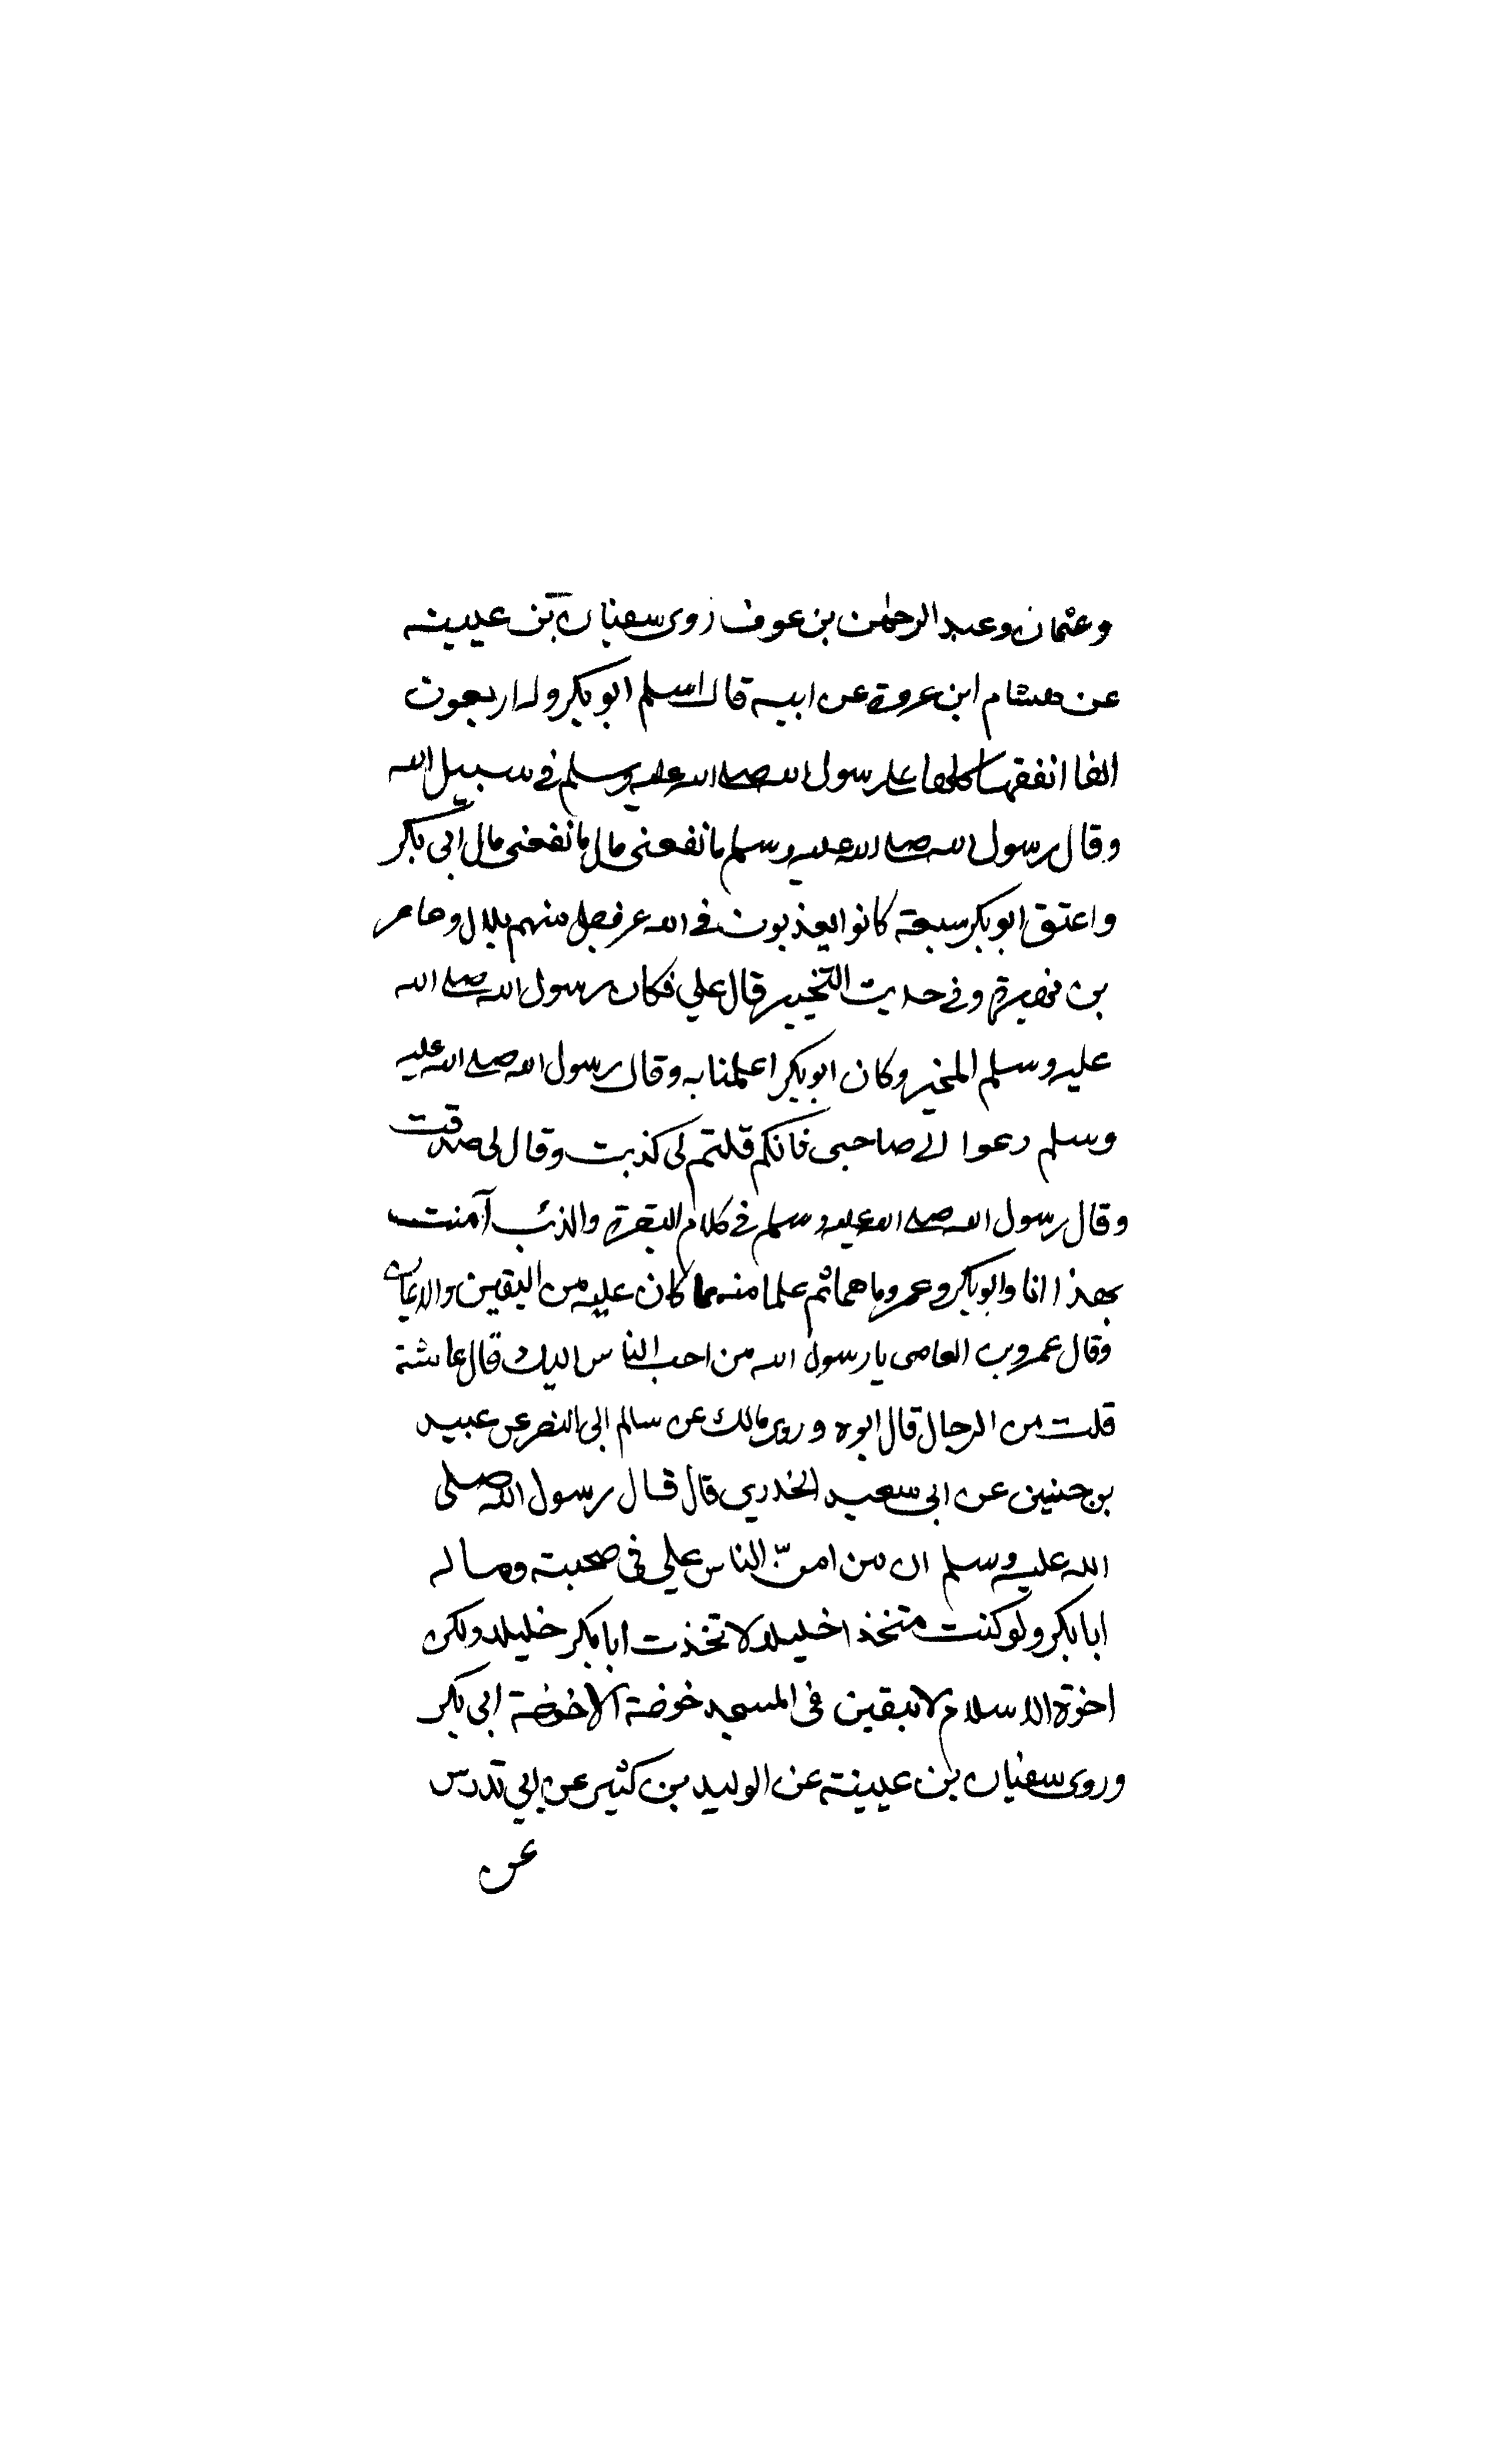 وعثمان وعبد الرحمن بن عوف روى سفيان بن عيينه
عن هشام ابن عروة عن ابيه قال اسلم ابو بكر وله اربعون
الفا انفقها كلها على رسول الله صلى الله عليه وسلم في سبيل الله
وقال رسول الله صلى الله عليه وسلم ما نفعنى مال ما نفعنى مال ابى بكر
واعتق ابو بكر سبعة كانوا يعذبون في الله منهم بلال وعامر
بن فهيرة وفي حديث التخيير قال علي فكان رسول الله صلى الله
عليه وسلم المخير وكان ابو بكر اعلمنا به وقال رسول الله صلى الله عليه
وسلم دعوا الى صاحبى فانكم قلتم لى كذبت وقال لى صدقت
وقال رسول الله صلى الله عليه وسلم في كلام البقرة والذئب آمنت
بهذا انا وابو بكر وعمر وما هما ثم علما منه بما كان عليه من اليقين والايمان
وقال عمرو بن العاصى يا رسول الله من احب الناس اليك قال عائشة
قلت من الرجال قال ابوه وروى مالك عن سالم ابى النضر عن عبيد
بن حنين عن ابى سعيد الخدري قال قال رسول الله صلى
الله عليه وسلم ان من امنّ الناس علي فى صحبته وماله
ابا بكر ولو كنت متخذا خليلا لاتخذت ابا بكر خليلا ولكن
اخوة الاسلام لا تبقين فى المسجد خوخة الا خوخة ابى بكر
وروى سفيان بن عيينة عن الوليد بن كثير عن ابي تدرس
عن